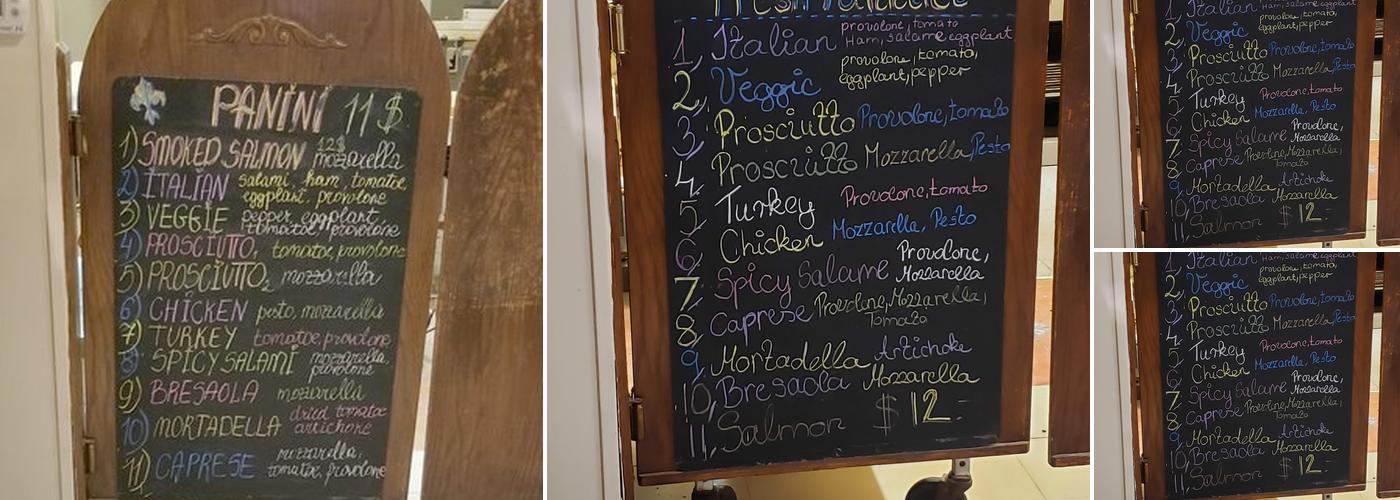 PANINI 11$
1) SMOKED SALMON 12$ mozzarella
2) ITALIAN salami, ham, tomatoe,
eggplant, provolone
3) VEGGIE pepper, eggplant,
tomatoe, provolone
4) PROSCIUTTO, tomatoe, provolone
5) PROSCIUTTO2 mozzarella
6) CHICKEN pesto, mozzarella
7) TURKEY tomatoe, provolone
8) SPICY SALAMI mozzarella,
provolone
9) BRESAOLA mozzarella
10) MORTADELLA dried tomatoe
artichore
11) CAPRESE mozzarella,
tomatoe, provolone
1, Italian provolone, tomato
Ham, salame eggplant
2, Veggie provolone, tomato,
eggplant, pepper
3, Prosciutto Provolone, tomato
4, Prosciutto Mozzarella, Pesto
5, Turkey Provolone, tomato
6, Chicken Mozzarella, Pesto
7, Spicy Salame Provolone,
Mozzarella
8, Caprese Provolone, Mozzarella,
Tomato
9, Mortadella Artichoke
10, Bresaola Mozzarella
11, Salmon $12.-
1, Italian Ham, salame eggplant
2, Veggie provolone, tomato,
eggplant, pepper
3, Prosciutto Provolone, tomato
4, Prosciutto Mozzarella, Pesto
5, Turkey Provolone, tomato
6, Chicken Mozzarella, Pesto
7, Spicy Salame Provolone,
Mozzarella
8, Caprese Provolone, Mozzarella,
Tomato
9, Mortadella Artichoke
10, Bresaola Mozzarella
11, Salmon $12.-
1, Italian Ham, salame eggplant
2, Veggie provolone, tomato,
eggplant, pepper
3, Prosciutto Provolone, tomato
4, Prosciutto Mozzarella, Pesto
5, Turkey Provolone, tomato
6, Chicken Mozzarella, Pesto
7, Spicy Salame Provolone,
Mozzarella
8, Caprese Provolone, Mozzarella,
Tomato
9, Mortadella Artichoke
10, Bresaola Mozzarella
11, Salmon $12.-